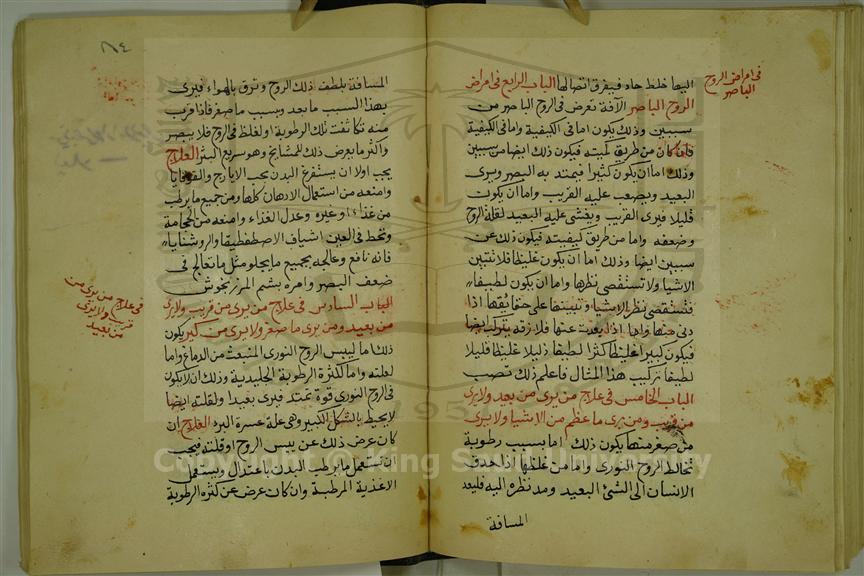 في امراض الروح
الباصر
اليها خلط حاد فيفرق اتصالها الباب الرابع في امراض
الروح الباصر الآفة تعرض في الروح الباصر من
سببين وذلك يكون اما في الكيفية واما في الكمية
فان كان من طريق كميته فيكون ذلك ايضا من سببين
وذلك اما ان يكون كثيرا فيمتد به البصر ويرى
البعيد ويصعب عليه القريب واما ان يكون
قليلا فيرى القريب ويغشى عليه البعيد لقلة الروح
وضعفه واما من طريق كيفيته فيكون ذلك عن
سببين ايضا وذلك اما ان يكون غليظا فلا تتبين
الاشيا ولا تستقصى نظرها واما ان يكون لطيفا
فتستقصى نظر الاشيا وتبينها على حقايقها اذا
دنى منها فاما اذا بعدت عنها فلا زقه يتركب ايضا
فيكون كبيرا غليظا كثرا لطيفا ذليلا غليظا قليلا
لطيفا تركيب هذا المثال فاعلم ذلك تصب
الباب الخامس في علاج من يرى من بعد ولا يرى
من قرب ومن يرى ما عظم من الاشيا ولا يرى
من صغر منها يكون ذلك اما بسبب رطوبة
تخالط الروح النورى واما من غلظها اذا حدق
الانسان الى الشئ البعيد ومد نظره اليه فلبعد
المسافة
٨٤
المسافة يلطف ذلك الروح وترق بالهواء فيرى
بهذا السبب ما بعد وبسبب ما صغر فاذا قرب
منه تكاثفت تلك الرطوبة او لغلظ في الروح فلا يبصر
واكثر ما يعرض ذلك للمشايخ وهو سريع البرؤ العلاج
يجب اولا ان يستفرغ البدن بحب الايارج والقوقايا
وامنعه من استعمال الادهان كلها ومن جميع ما يرطب
من غذاء او غيره وعدل الغذاء وامنعه من الحجامة
وتخط في العين اشياف الاصطفطيقا والروشنايا
فانه نافع وعالجه بجميع ما يجلو مثل ما تعالج في
ضعف البصر وامره بشم المرزنجوش
الباب السادس في علاج من يرى من قريب ولا يرى
من بعيد ومن يرى ما صغر ولا يرى من كبر يكون
ذلك اما ليبس الروح النورى المنبعث من الدماغ واما
لعلته واما لكثرة الرطوبة الجليدية وذلك ان لا يكون
في الروح النورى قوة تمتد فيرى بعيدا ولقلته ايضا
لا يحيط بالشكل الكبير وهى علة عسرة البرء العلاج ان
كان عرض ذلك عن يبس الروح او قلته فيجب
ان تستعمل ما يرطب البدن باعتدال ويستعمل
الاغذية المرطبة وان كان عرض عن كثره الرطوبة
في علاج من يرى من
قرب ولا يرى
من بعيد
Copyright © King Saud University
1957